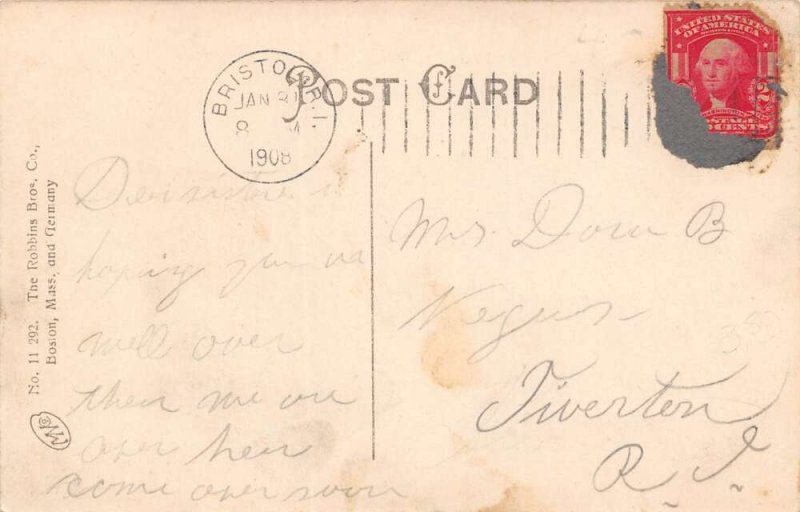 UNITED STATES
OF AMERICA
POST CARD
BRISTOL, R.I.
JAN 31
8 M
1908
WASHINGTON
2
POSTAGE
CENTS
No. 11 292. The Robbins Bros. Co.,
Boston, Mass. and Germany
Dear sister
hoping you
well over
then we are
over here
come over soon
Mrs. Dora B
Negus
Tiverton
R. I.